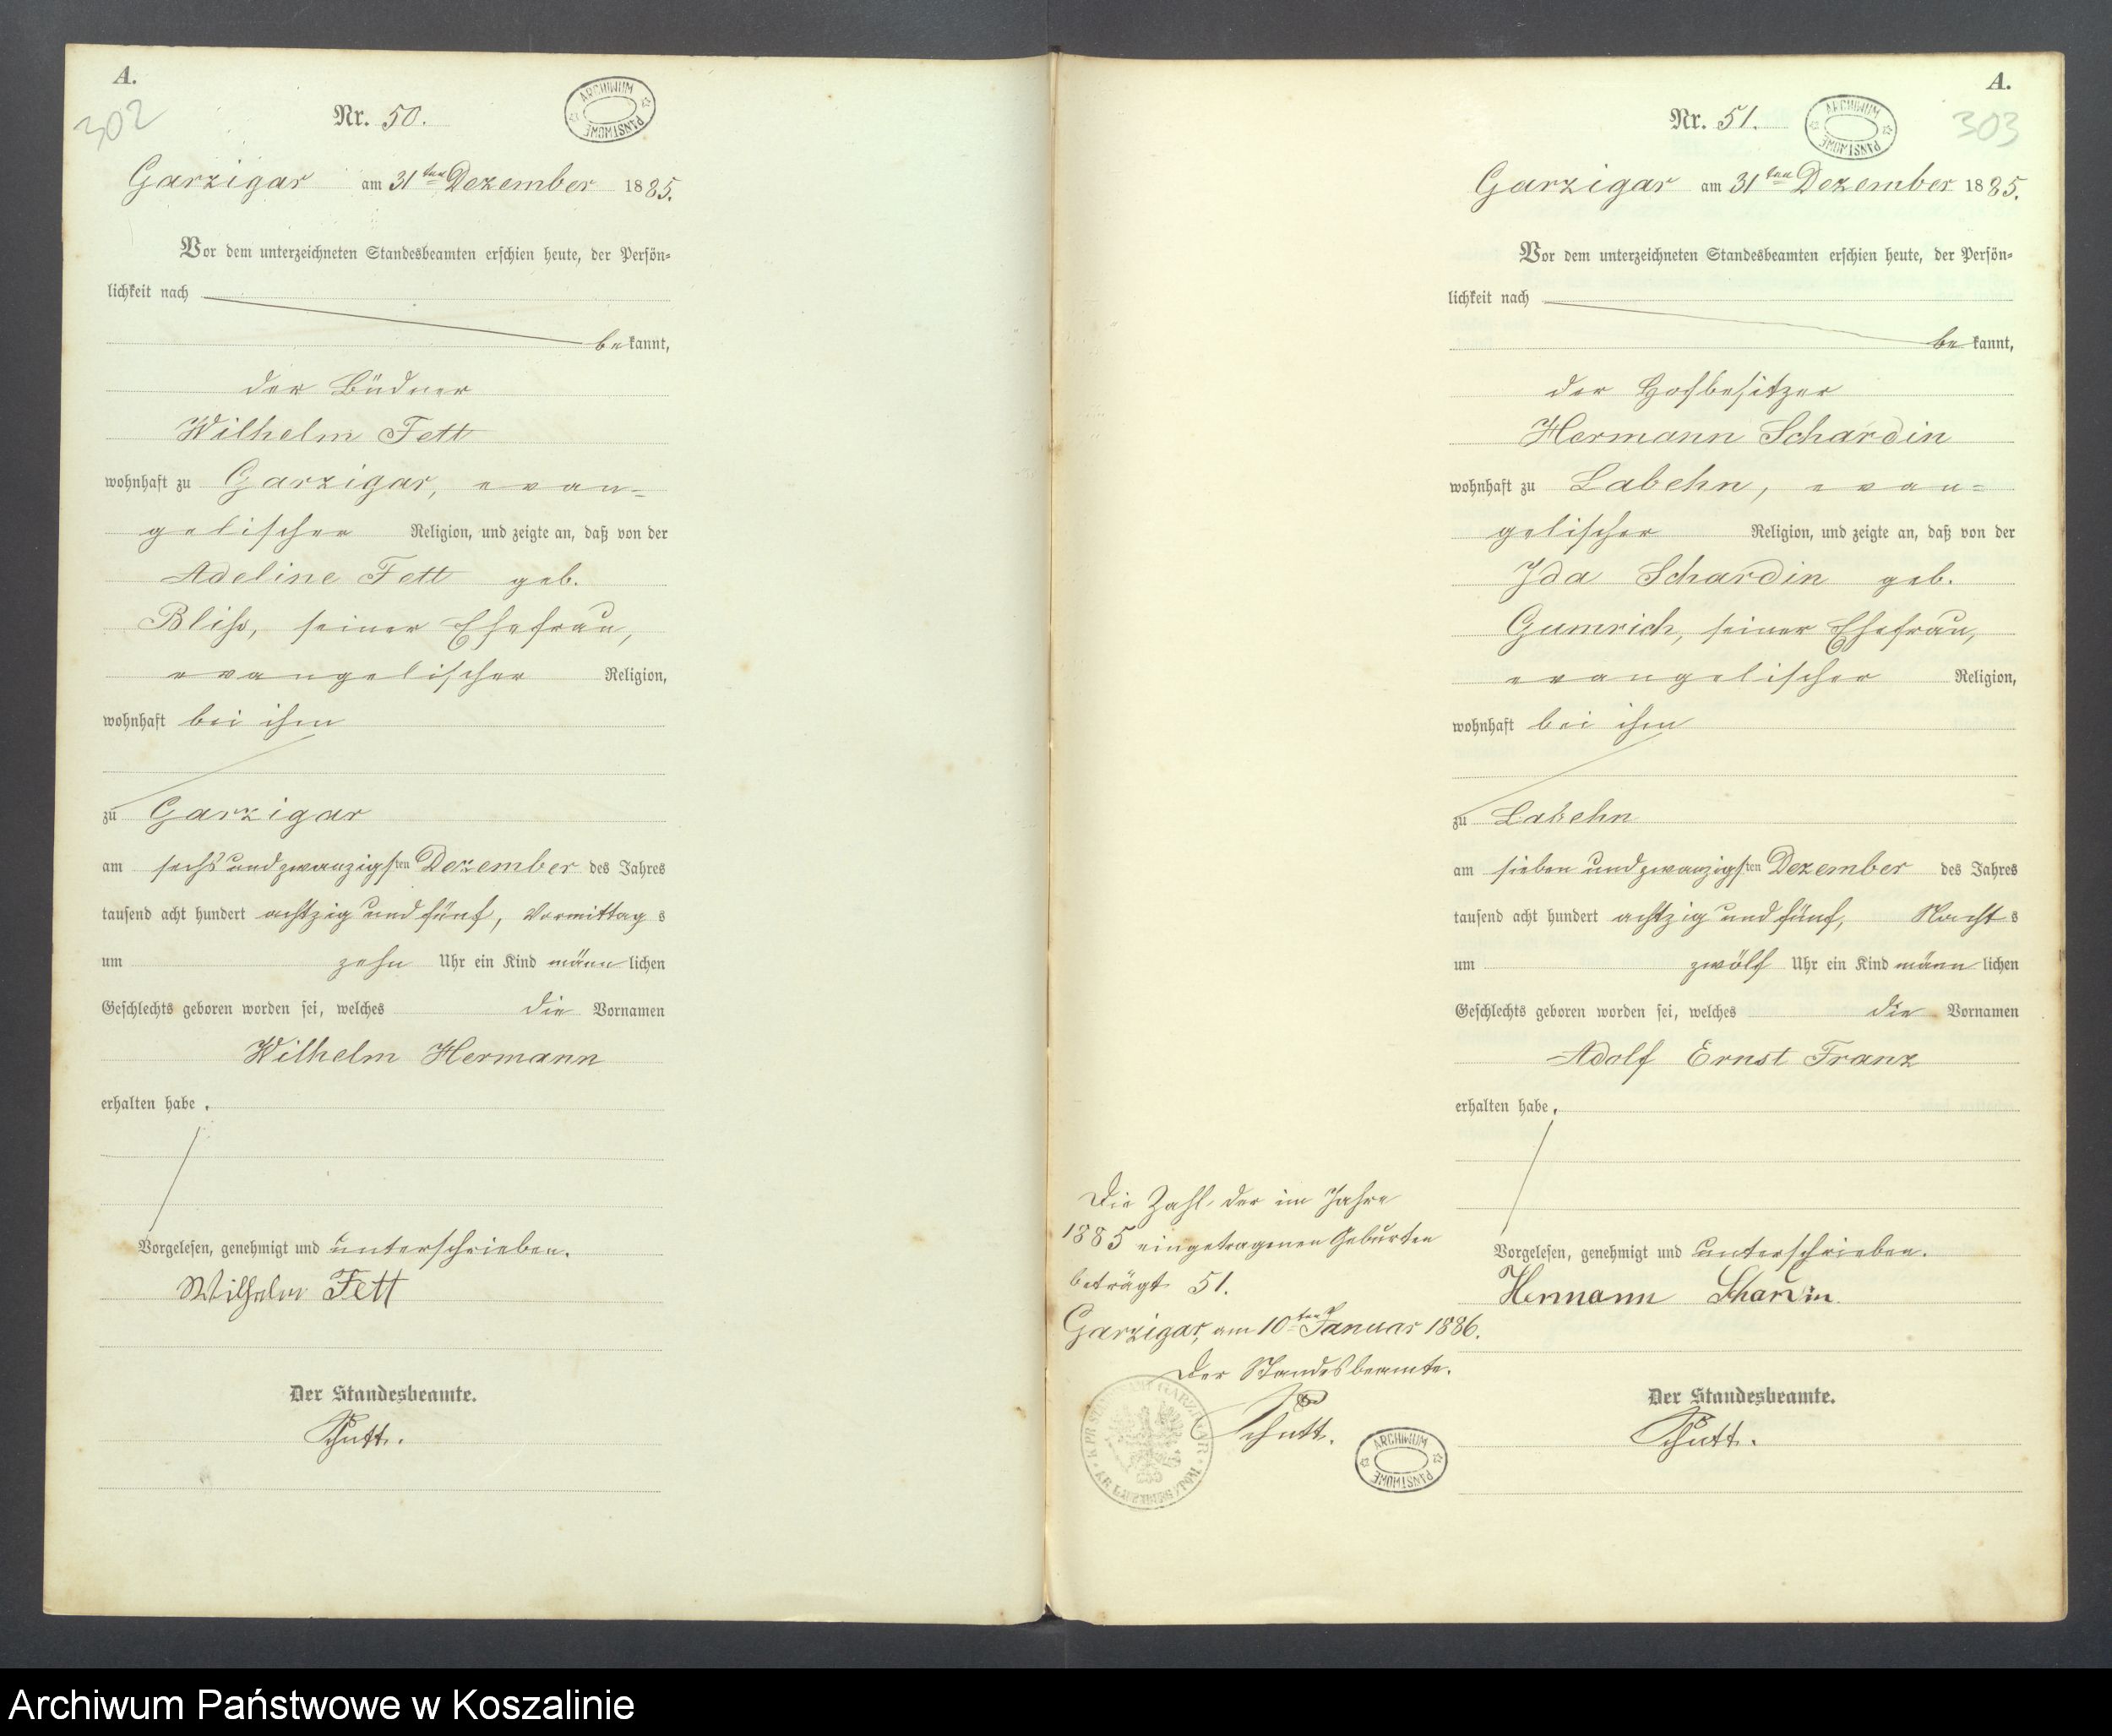 A.
302
Nr. 50.
ARCHIWUM PAŃSTWOWE
Garzigar am 31ten Dezember 1885.
Vor dem unterzeichneten Standesbeamten erschien heute, der Persön-
lichkeit nach
bekannt,
der Büdner
Wilhelm Fett
wohnhaft zu Garzigar, evan-
gelischer Religion, und zeigte an, daß von der
Adeline Fett geb.
Bliß, seiner Ehefrau,
evangelischer Religion,
wohnhaft bei ihm
zu Garzigar
am sechs und zwanzigsten Dezember des Jahres
tausend acht hundert achtzig und fünf, Vormittags
um zehn Uhr ein Kind männlichen
Geschlechts geboren worden sei, welches die Vornamen
Wilhelm Hermann
erhalten habe.
Vorgelesen, genehmigt und unterschrieben.
Wilhelm Fett
Der Standesbeamte.
Schutt.
A.
303
Nr. 51.
ARCHIWUM PAŃSTWOWE
Garzigar am 31ten Dezember 1885.
Vor dem unterzeichneten Standesbeamten erschien heute, der Persön-
lichkeit nach
bekannt,
der Hofbesitzer
Hermann Schardin
wohnhaft zu Labehn, evan-
gelischer Religion, und zeigte an, daß von der
Ida Schardin geb.
Gumrich, seiner Ehefrau,
evangelischer Religion,
wohnhaft bei ihm
zu Labehn
am sieben und zwanzigsten Dezember des Jahres
tausend acht hundert achtzig und fünf, Nachts
um zwölf Uhr ein Kind männlichen
Geschlechts geboren worden sei, welches die Vornamen
Adolf Ernst Franz
erhalten habe.
Vorgelesen, genehmigt und unterschrieben.
Hermann Schardin.
Der Standesbeamte.
Schutt.
Die Zahl der im Jahre
1885 eingetragenen Geburten
beträgt 51.
Garzigar, am 10ten Januar 1886.
Der Standesbeamte.
Schutt.
STANDESAMT GARZIGAR
ARCHIWUM PAŃSTWOWE
Archiwum Państwowe w Koszalinie